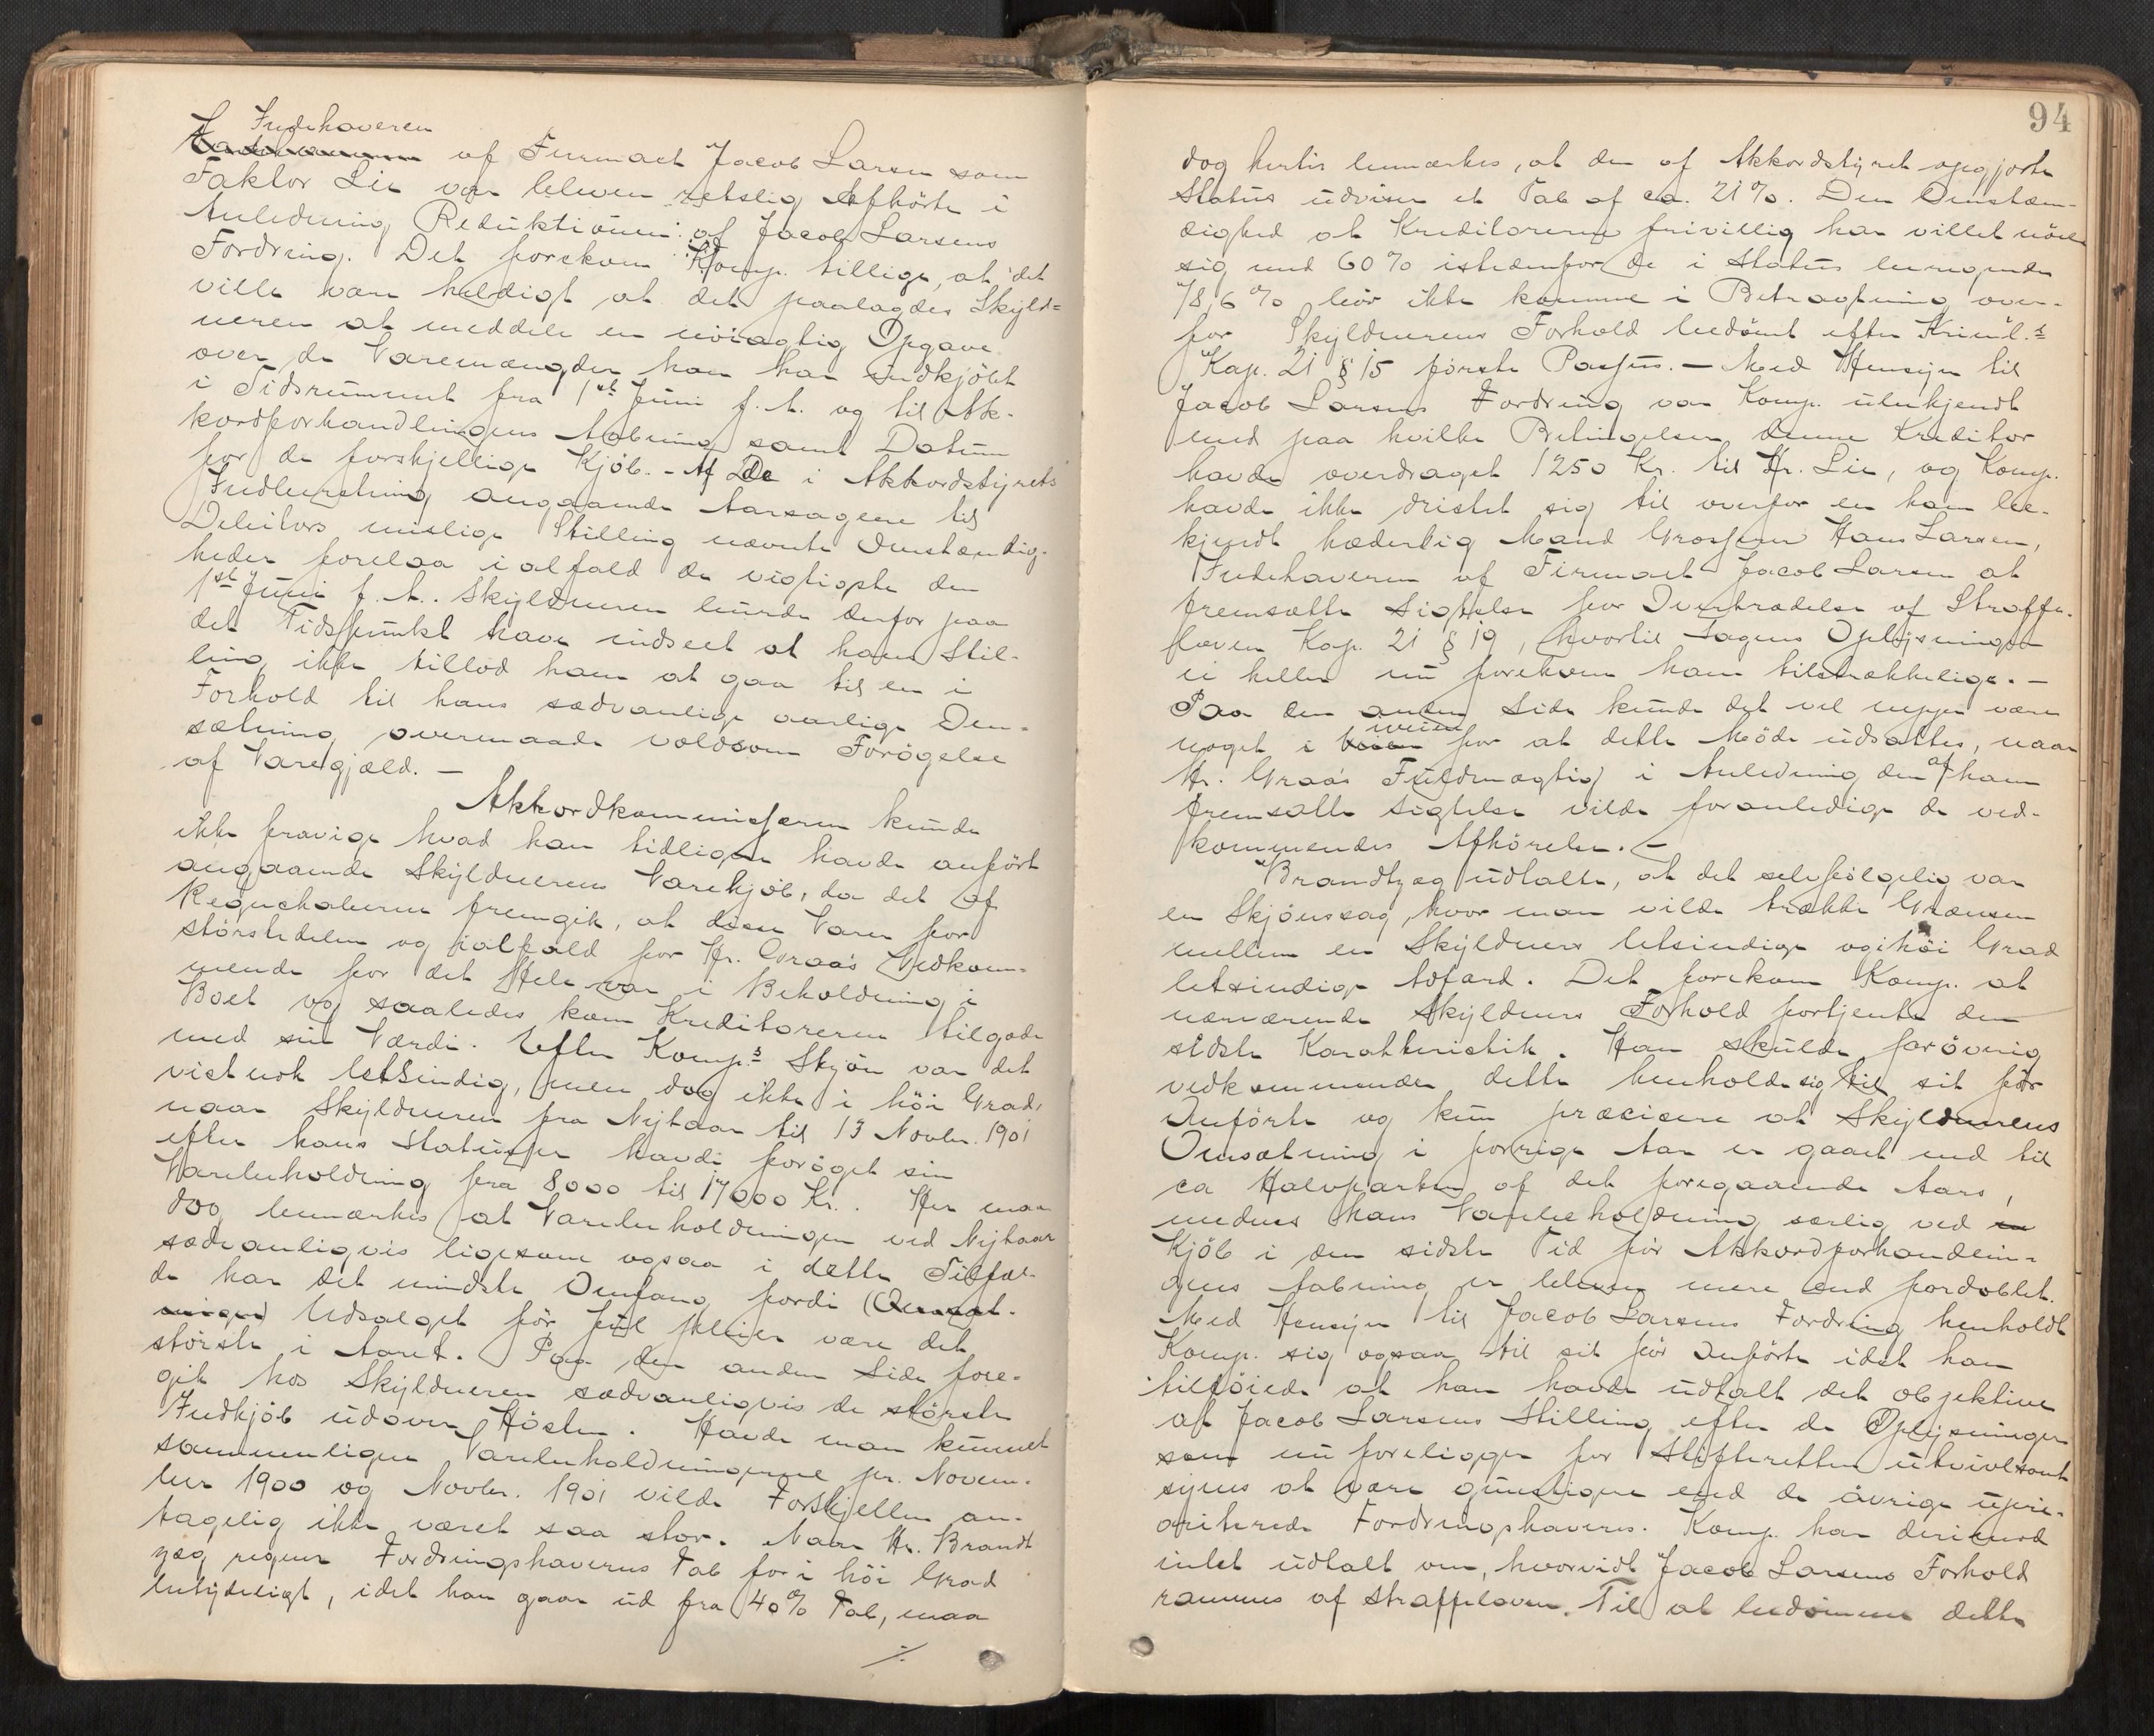 Indehaveren
af Firmaet Jacob Larsen som
Faktor Lie var bleven retslig Afhørte i
Anledning Reduktionen af Jacob Larsens
Fordring. Det forekom Komp. tillige, at det
ville være heldigt at det paalagdes Skyld-
neren at meddele en nöiagtig Opgave
over de Varemængder han har indkjöbt
i Tidsrummet fra 1st Juni f. A. og til Ak-
kordforhandlingens Aabning samt Datum
for de forskjellige Kjöb. - Af De i Akkordstyrets
Indberetning angaaende Aarsagene til
Debitors mislige Stilling nævnte Omstændig-
heder forelaa ialfald de vigtigste den
1st Juni f. A.. Skyldneren burde derfor paa
det Tidspunkt have indseet at hans Stil-
ling ikke tillod ham at gaa til en i
Forhold til hans sædvanlige aarlige Om-
sætning overmaade voldsom Forögelse
af Varegjæld. -
Akkordkommissæren kunde
ikke fravige hvad han tidligere havde anfört
angaaende Skyldnerens Varekjöb, da det af
Regnskaberne fremgik, at disse Varer for
störstedelen og ialfald for Hr. Graa's Vedkom-
mende for det Hele var i Beholdning i
Boet og saaledes kom Kreditorerne tilgode
med sin Værdi. Efter Komp.s Skjön var det
vistnok letsindig, men dog ikke i höi Grad,
naar Skyldneren fra Nytaar til 13 Novbr. 1901
efter hans Status havde foröget sin
Varebeholdning fra 8000 til 17000 Kr.. Her maa
dog bemærkes at Varebeholdningen ved Nytaar
sædvanligvis ligesom ogsaa i dette Tilfæl-
de har det mindste Omfang fordi
Udsalget för Jul pleier være det
störste i Aaret. Paa den anden Side fore-
gik hos Skyldneren sædvanligvis de störste
Indkjöb udover Hösten. Havde man kunnet
sammenligne Varebeholdningerne pr. Novem-
ber 1900 og Novbr. 1901 vilde Forskjellen an-
tagelig ikke været saa stor. Naar Hr. Brandt
zæg regner Fordringshavernes Tab for i höi Grad
betydeligt, idet han gaar ud fra 40% Tab, maa
./.
94
dog hertil bemærkes, at den af Akkordstyret opgjorte
Status udviser et Tab af ca. 21%. Den Omstæn-
dighed at Kreditorerne frivillig har villet nöie
sig med 60% istedenfor de i Status beregnede
78,6% bör ikke komme i Betragtning over-
for Skyldnerens Forhold bedömt efter Kriml.s
Kap. 21 § 15 første Passus. - Med Hensyn til
Jacob Larsens Fordring var Komp. ubekjendt
med paa hvilke Betingelser denne Kreditor
havde overdraget 1250 Kr. til Hr. Lie, og Komp.
havde ikke dristet sig til overfor en ham be-
kjendt hæderlig Mand Grosserer Hans Larsen,
Indehaveren af Firmaet Jacob Larsen at
fremsætte Sigtelse for Overtrædelse af Straffe-
loven Kap. 21 § 19, hvortil Sagens Oplysninger
ei heller nu forekom ham tilstrækkelige. -
Paa den anden Side kunde det vel neppe være
noget i veien for at dette Möde udsattes, naar
Hr. Graa's Fuldmægtig i Anledning den af ham
fremsatte Sigtelse vilde foranledige de ved-
kommendes Afhörelse. -
Brandtzæg udtalte, at det selvfölgelig var
en Skjönssag, hvor man vilde trække Grænsen
mellem en Skyldners letsindige og i höi Grad
letsindige Adfærd. Det forekom Komp. at
nærværende Skyldners Forhold fortjente den
sidste Karakteristik. Han skulde foröverig
vedkommende dette henholde sig til sit för
Anförte og kun præcisere at Skyldnerens
Omsætning i forrige Aar er gaaet ned til
ca Halvparten af det foregaaende Aars,
medens hans Varebeholdning særlig ved
Kjöb i den sidste Tid för Akkordforhandlin-
gens Aabning er bleven mere end fordoblet.
Med Hensyn til Jacob Larsens Fordring henholdt
Komp. sig ogsaa til sit för Anförte idet han
tilföiede at han havde udtalt det objektive
at Jacob Larsens Stilling efter de Oplysninger
som nu foreligger for Skifteretten utvivlsomt
synes at være gunstigere end de övrige upri-
oriterede Fordringshaveres. Komp. har derimod
intet udtalt om, hvorvidt Jacob Larsens Forhold
rammes af Straffeloven. Til at bedömme dette